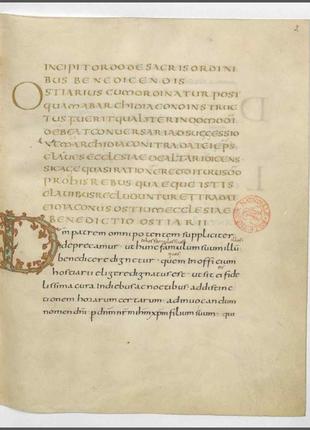 2
INCIPIT ORDO DE SACRIS ORDINI
BUS BENEDICENDIS
OSTIARIUS CUM ORDINATUR POST
QUAM AB ARCHIDIACONO INSTRUC
TUS FUERIT QUALITER IN DOMO DĪ
DEBEAT CONVERSARI AD SUGGESSIO
ARCHIDIACONI TRADAT EI EPS
CLAVES ECCLESIAE DE ALTARI DICENS
SIC AGE QUASI RATIONEM REDDITURUS DŌ
PRO HIS REBUS QUAE QUE ISTIS
CLAVIBUS RECLUDUNTUR ET TRADAT
EI DIACONUS OSTIUM ECCLESIAE
BENEDICTIO OSTIARII
Dm patrem omnipotentem suppliciter
deprecamur ut hunc famulum suum
benedicere dignetur quem in officium
hostiarii eligere dignatus est ut sit ei fide
lissima cura indiebus ac noctibus addistinc
tionem horarum certarum ad invocandum
nomen dni p dnm nrm ihm xpm filium suum qui